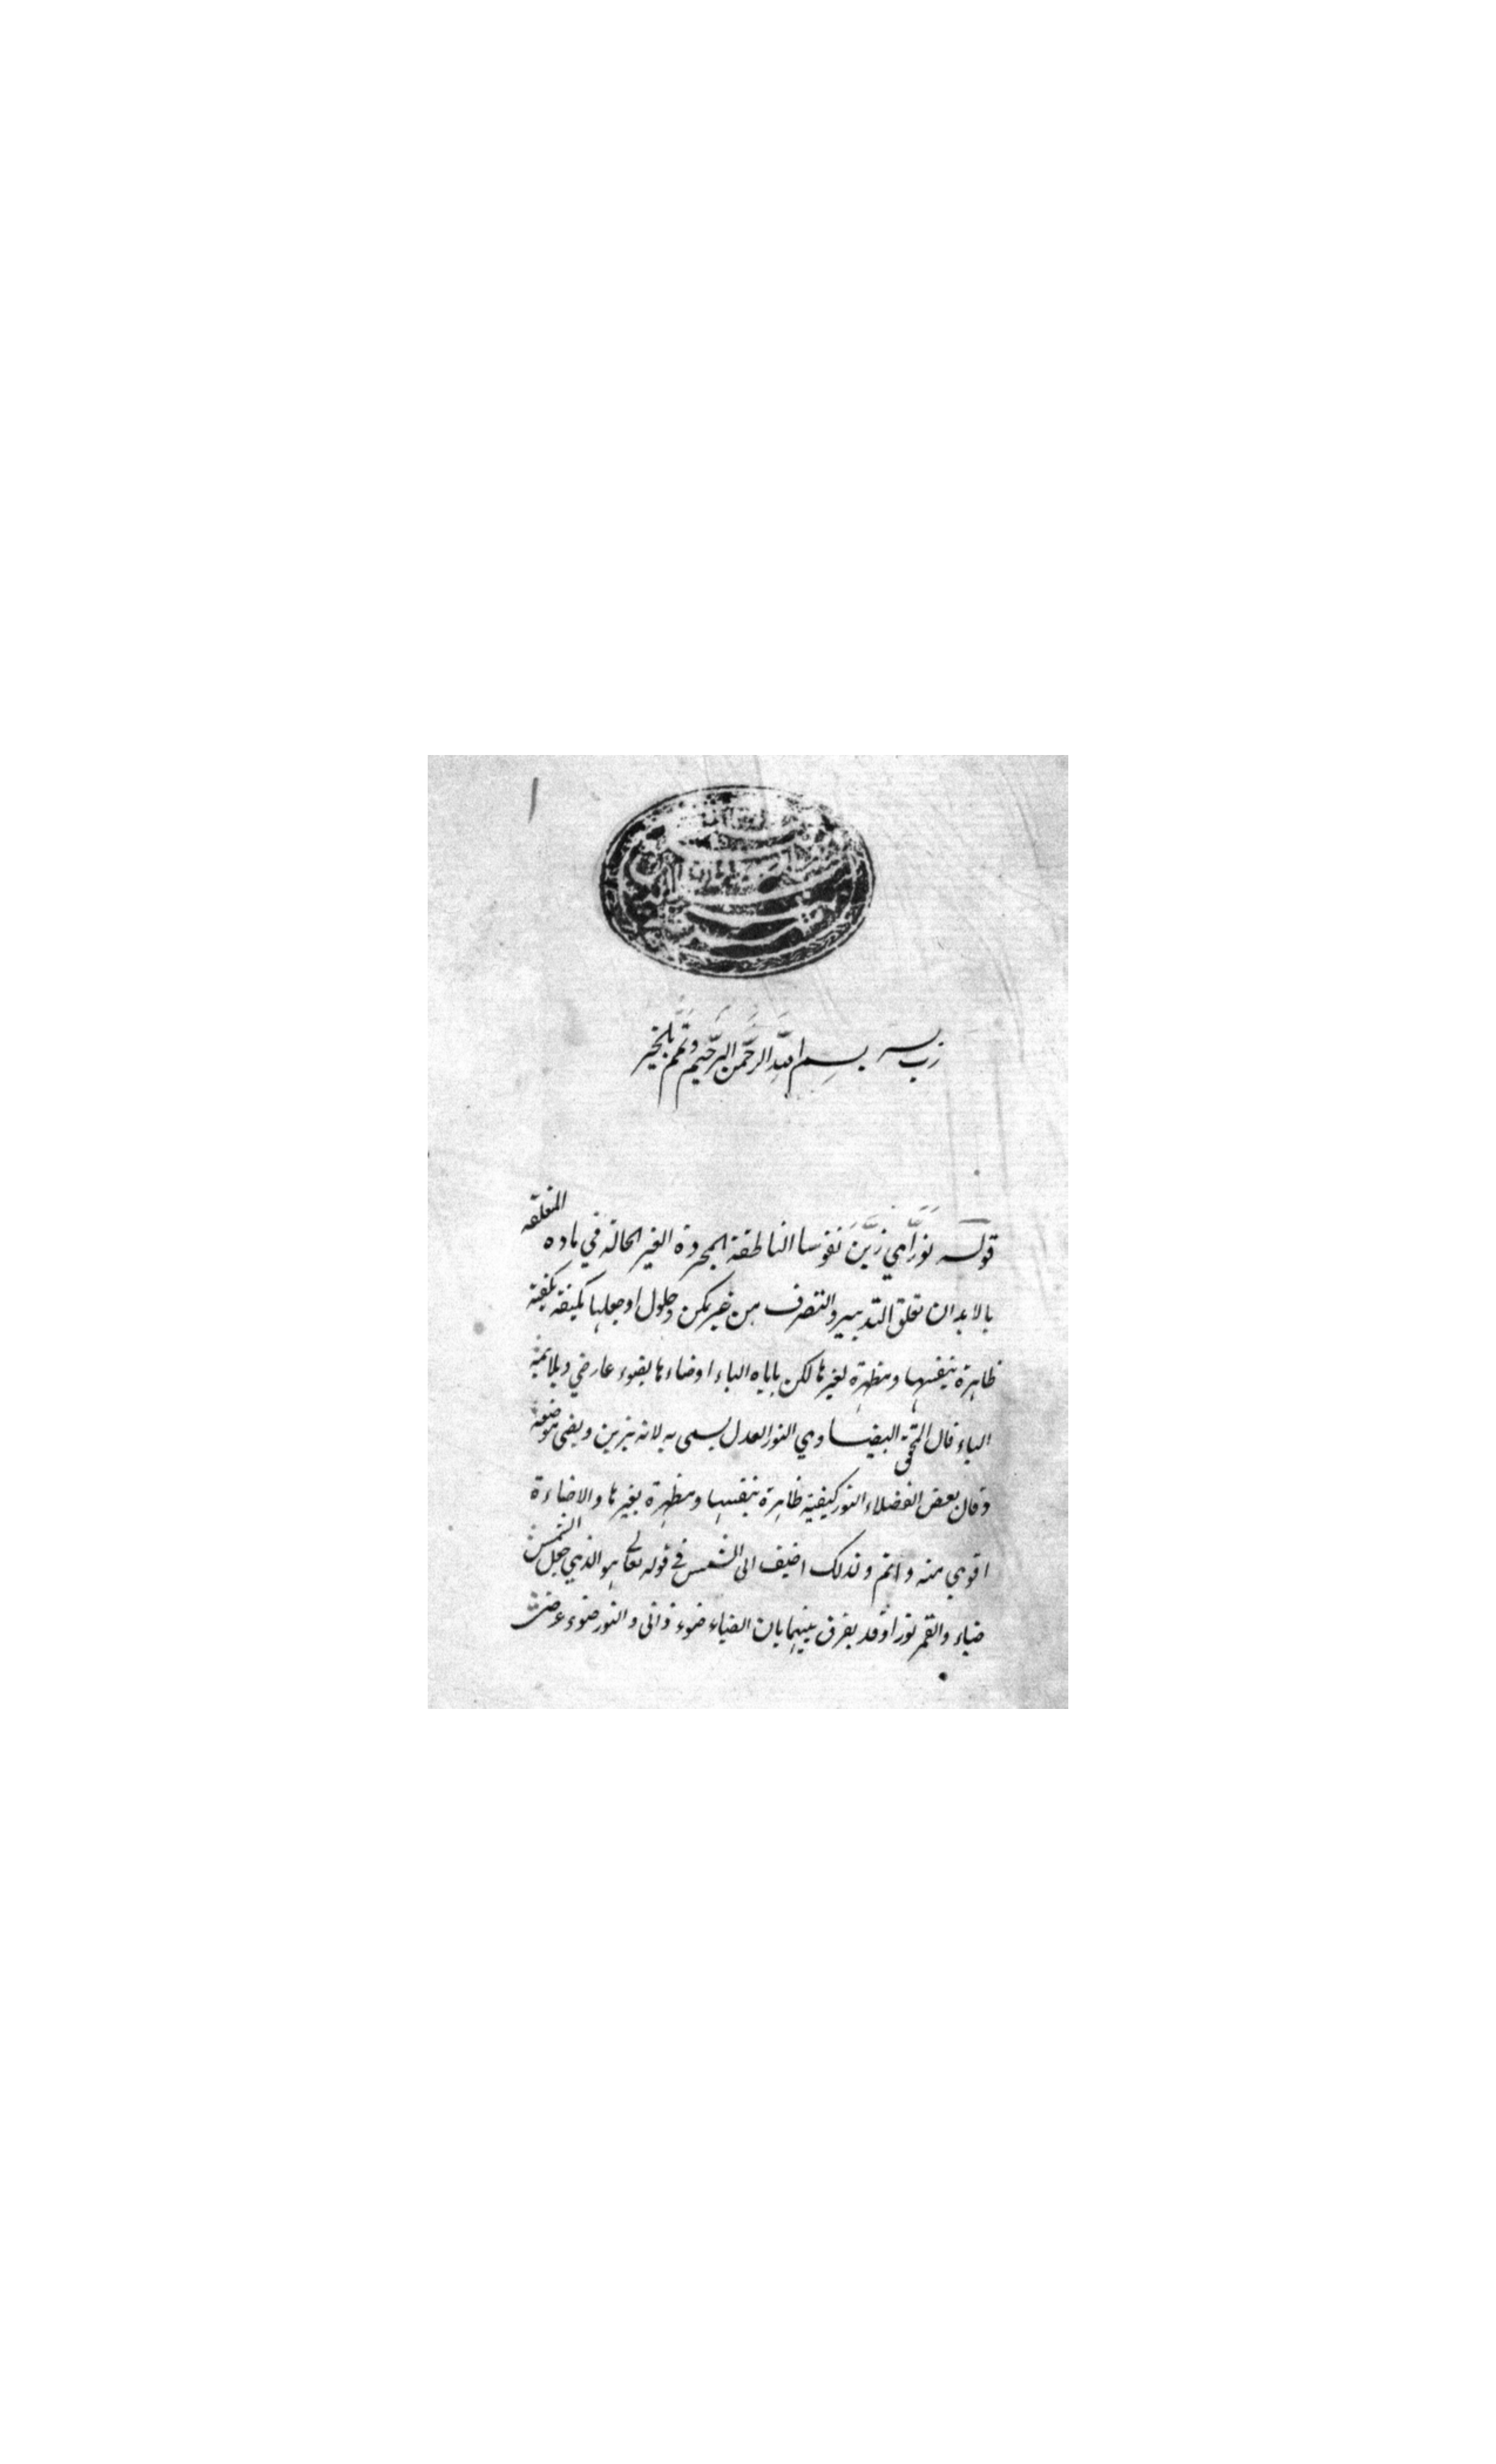 رب يسر بسم الله الرحمن الرحيم وتمم بالخير
قوله نور اي زين نفوسا الناطقة المجردة الغير الحالة في ماده المتعلقه
بالابدان تعلق التدبير والتصرف من غير تمكن وحلول او جعلها مكيفة بكيفية
ظاهرة بنفسها ومظهرة لغيرها لكن يأباه الباء او ضاءها بضوء عارضي ويلائمه
الباء قال المحقق البيضاوي النور العدل يسمى به لانه يزين ويضى
وقال بعض الفضلاء النور كيفية ظاهرة بنفسها ومظهرة بغيرها والاضاءة
اقوي منه واتم ولذلك اضيف الى الشمس في قوله تعالى هو الذي جعل الشمس
ضياء والقمر نورا وقد يفرق بينهما بان الضياء ضوء ذاتى والنور ضوء عرضى